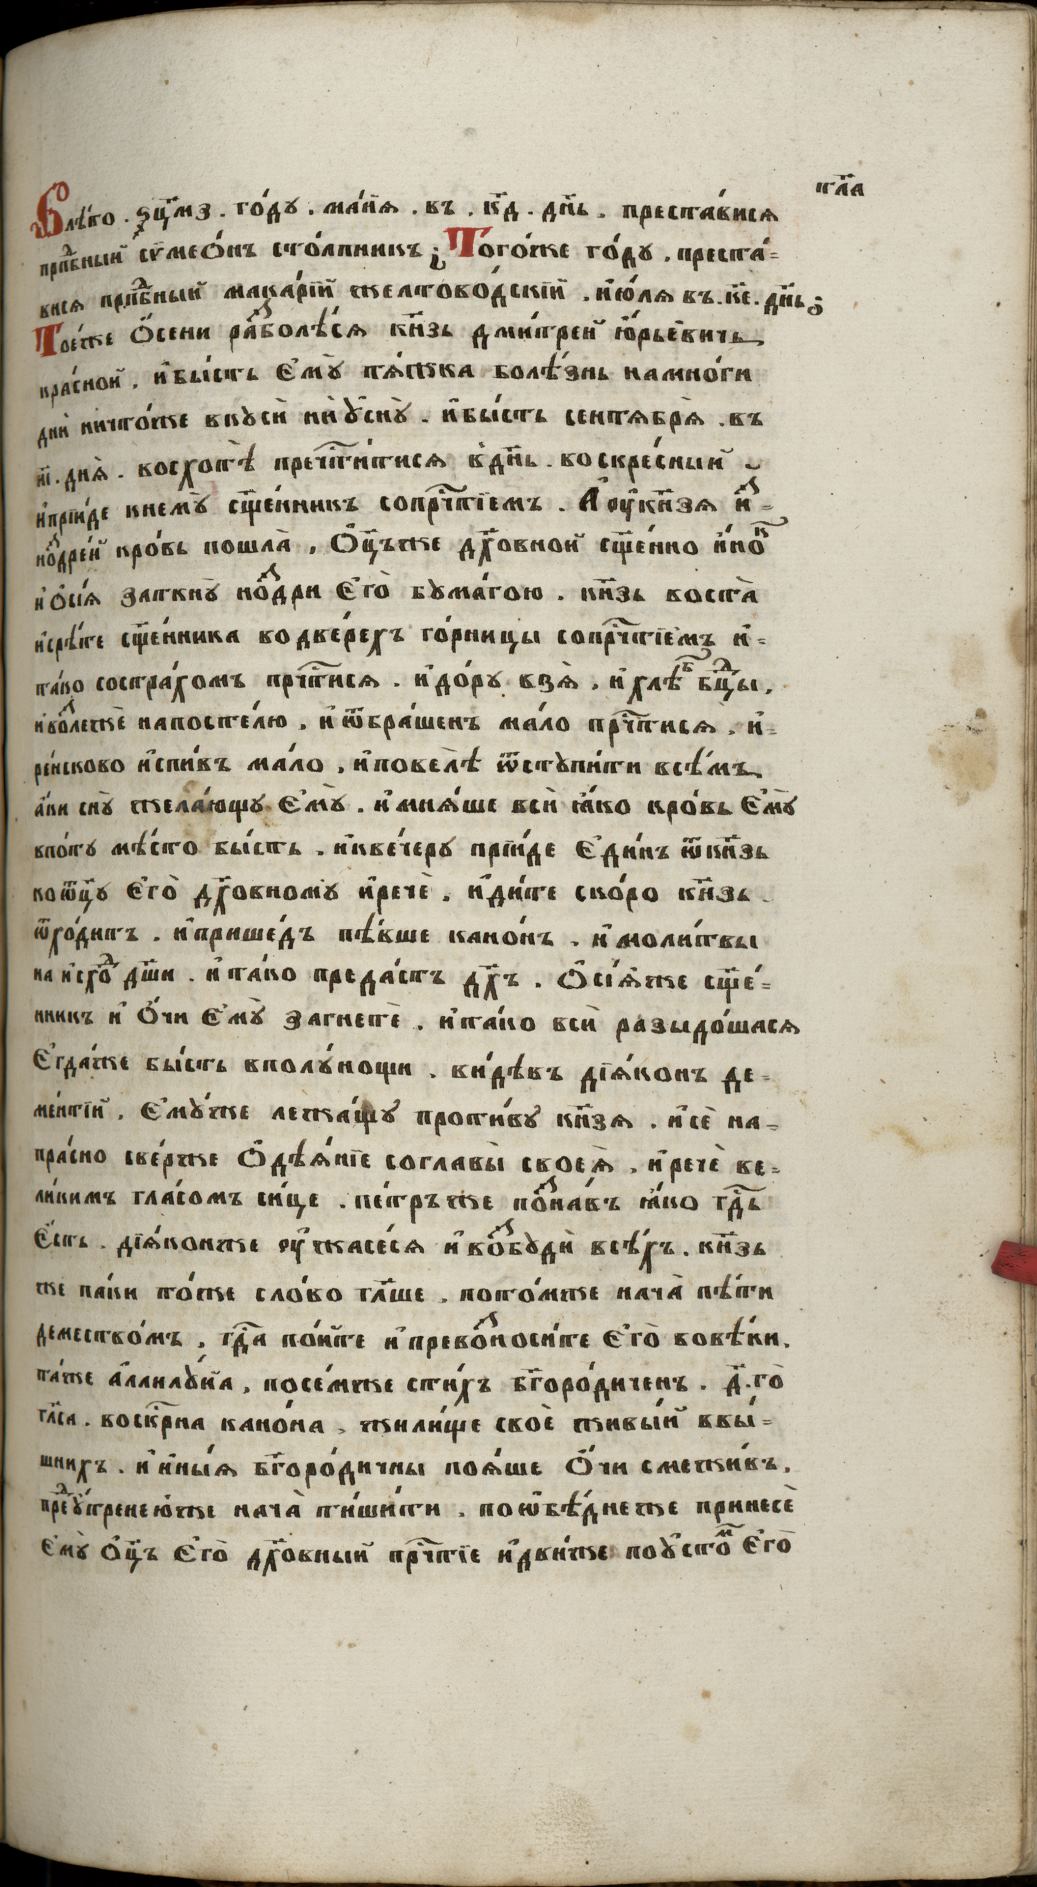 тл҃а
Влѣто . ꙅц҃мз . го́ду . ма́їя . въ . к҃д . дн҃ь . преста́вися
прп҇дбный си̑мео́нъ сто́лпникъ ; Того́же го́ду . преста́=
вися прп҇дбный мака́рїй желтово́дскїй . и҆ю́ля въ . к҃е . дн҃ь ;
Тое́же о҆́сени раⷥболѣ́ся кн҃зь дми́трей ю҆́рьевичь
кра́сной , и҆ бы́сть е҆мꙋ̀ тя́жка болѣ́знь на мно́ги
дни̇̀ ничто́же вкуси̇̀ ни ꙋ҆снꙋ̀ . и҆ бы́сть сентября̀ . въ
и҃і . дня̀ . восхотѣ̀ преч҇ти́тися в̾ дн҃ь . воскре́сный
и҆ прїи́де к нему̀ сщ҃е́нникъ со пр҇чтїемъ . А҆ ѹ҆ кн҃зя и҆ⷥ=
ноⷥдре́й кро́вь пошла̀ , Ѻ҆ц҃ъже дх҃о́вной сщ҃е́нно и҆но́ⷦ
и҆ о҆сїя̀ заткнꙋ̀ но́ⷥдри е҆го̀ бума́гою . кн҃зь воста̀
и҆ срѣ́те сщ҃е́нника во две́рехъ го́рницы со пр҇чтїе́мъ и҆=
та́ко со стра́хомъ пр҇чтися . и҆ до́ру взя̀ , и҆ хлѣ́ⷠ бц҃ⷣы ,
и҆ воⷥлежѐ на посте́лю , и҆ ѿбра́щенъ ма́ло пр҇чтися̀ , и҆=
ре́нсково и҆спи́въ ма́ло , и҆ повелѣ̀ ѿступи́ти всѣ́мъ
а҆́ки снꙋ̀ жела́ющу е҆мꙋ̀ . и҆ мня́ще вси̇̀ ꙗ҆́ко кро́вь е҆мꙋ̀
в по́ту мѣ́сто бы́сть . и҆ к ве́черу прїи́де е҆ди́нъ ѿ кн҃зь
ко ѻ҆ц҃ꙋ е҆го̀ дх҃о́вномꙋ и҆ речѐ . и҆ди́те ско́ро кн҃зь
ѿхо́дитъ . и҆ прише́дъ пѣ́вше кано́нъ . и҆ моли́твы
на и҆схо́ⷣ дш҃и . и҆ та́ко преда́стъ дх҃ъ . Ѻ҆сїя́же сщ҃е́=
нникъ и҆ о҆́чи е҆мꙋ̀ загнетѐ . и҆ та́ко вси̇̀ разыдо́шася
Е҆гда́же бы́сть в полꙋ́нощи . ви́дѣвъ дїя́конъ де=
ме́нтїй . е҆мꙋ́же лежа́щꙋ проти́вꙋ кн҃зя . и҆ се̇̀ на=
пра́сно све́рже о҆дѣя́нїе со главы̀ своея̀ , и҆ речѐ ве=
ли́кимъ гла́сомъ си́це . пе́тръже поⷥна́въ ꙗ҆́ко гд҃ь
е҆́сть . дїя́конже ѹ҆жасе́ся и҆ воⷥбуди̇̀ всѣ́хъ . кн҃зь
же па́ки то́же сло́во гл҃аше , пото́мже нача̀ пѣ́ти
деме́ство́мъ , гд҃а по́йте и҆ превоⷥноси́те е҆го̀ во вѣ́ки .
та́же а҆ллилꙋ́їа , посе́мже сти́хъ бг҃оро́диченъ . д҃ . го̀
гл҃са . воскр҇на кано́на , жили́ще своѐ живы́й в вы́=
шнихъ . и҆ и҆ны́я бг҃оро́дичны поя́ше о҆́чи смежи́въ .
преⷣ ꙋ҆́тренеюже нача̀ ти́шити . по ѡ҆бѣ́днеже принесѐ
е҆мꙋ̀ ѻ҆ц҃ъ е҆го̀ дх҃о́вный пр҇чтїе и҆ дви́же по ꙋ҆сто́ⷨ е҆го̀